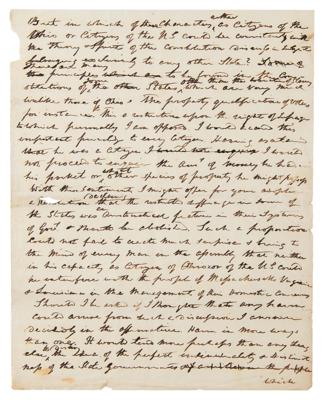 But in which of these Characters, as Citizens of the either
Ohio or Citizens of the U.S. could we consistently with
the theory & spirit of the Constitution discuss a subject
belonging exclusively to any other State? Some
principles to be found in the
of some other States, which are very much
unlike those of Ohio. The property qualification of voters
for instance this a restriction upon the right of suffrage
to which personally I am opposed. I would accord this
important privilege to every Citizen. Having ascertained
that he was a Citizen I would
not proceed to enquire the Amt. of money he had in
his pocket or what other species of property he might possess
With this sentiment I might offer for your adoption
a resolution declaring that the restricted suffrage in some of
the States was an feature in their systems
of Govt. & ought to be abolished. Such a proposition
could not fail to create much surprise & bring to
the mind of every man in the assembly that neither
in his capacity as Citizen of Ohio or of the U.S. could
he interfere with the people of Massachusetts Virginia
& Louisiana in the management of their domestic concerns
Should I be asked if I thought that any harm
could arise from such a discussion I answer
decidedly in the affirmative. Harm in more ways
than one. It would tend more perhaps than any thing
else to the idea of the perfect individuality & distinct
ness of the State Governments the
which